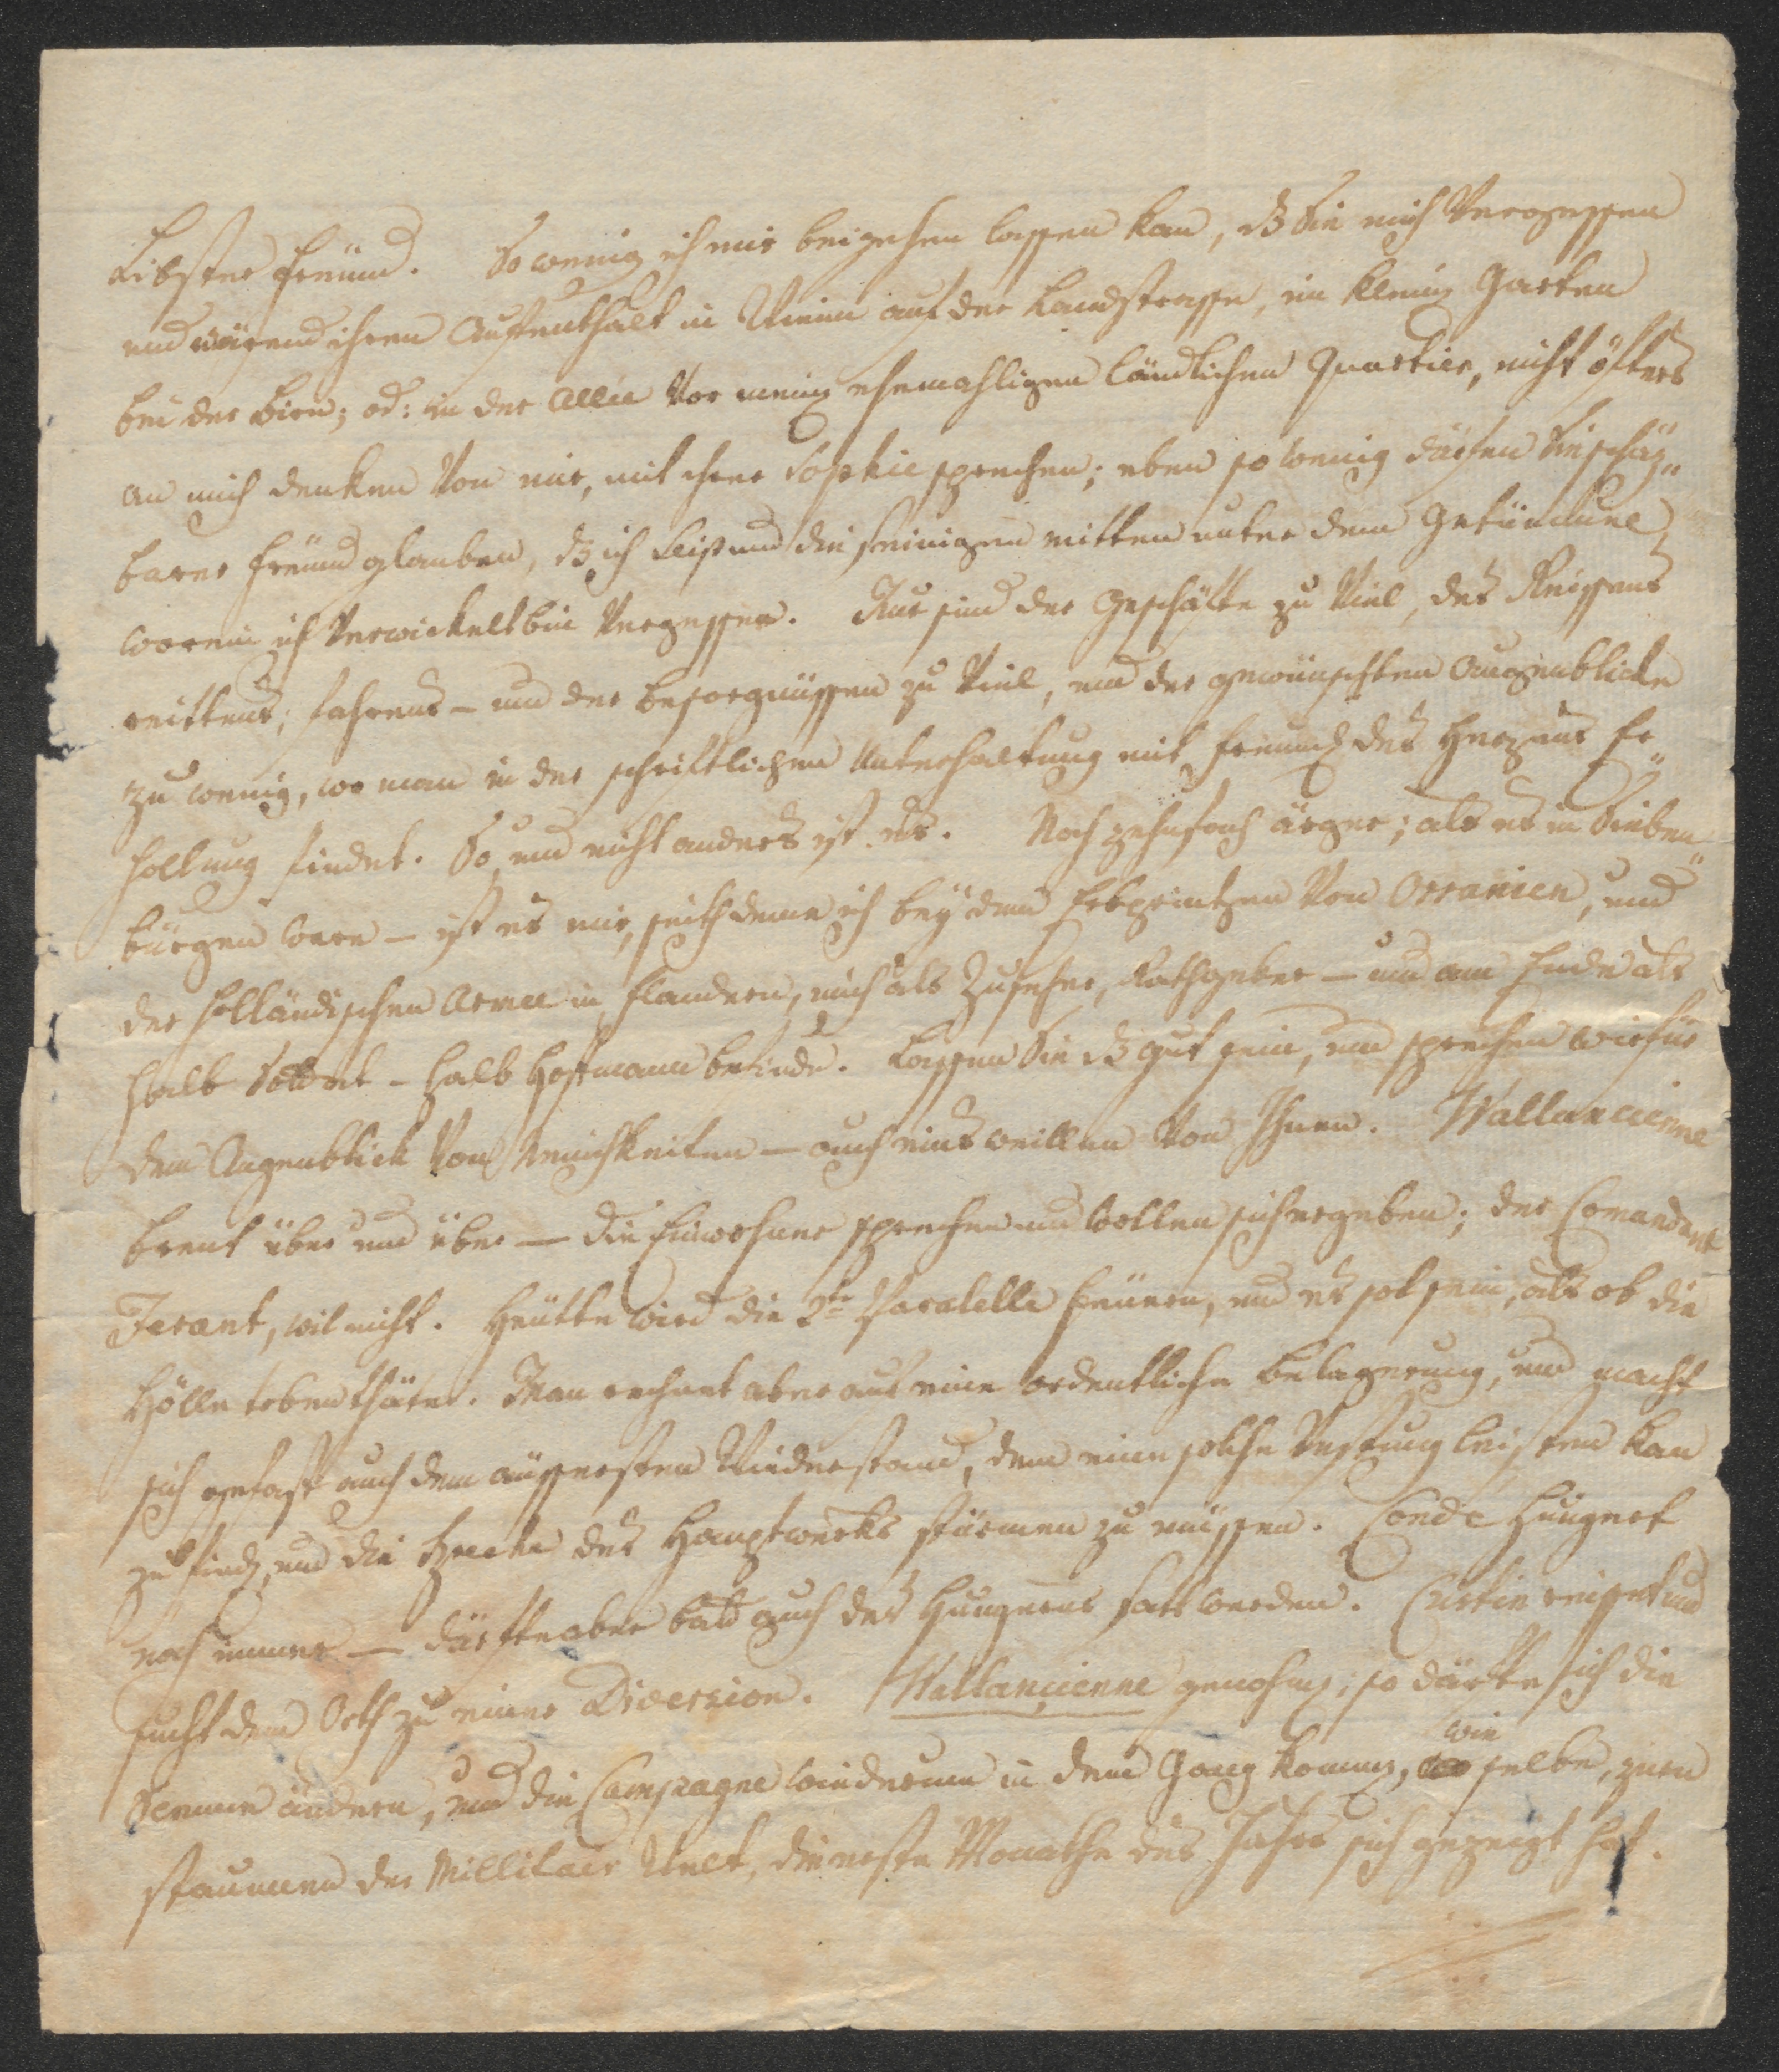 Libster Freünd. So wenig ich mir beigehen lassen kan, dß Sie mich Vergessen
und wärend ihren Aufenthalt in Wienn auf der Landstrasse, im kleinen Garten
bei der Birn; od: in der Allée Vor meinen ehemahligen ländlichen Quartier, nicht öfters
an mich denken Von mir, mit ihrer Sophie sprechen; eben so wenig därfen Sie schäz„
barer Freünd glauben, dß ich Leiß und die seinigen mitten unter dem Getümmel,
worein ich Verwickelt bin Vergesse. Nur sind der Geschäfte zu Viel, des Reissens
reittens; fahrens – und der besorgnüssen zu Viel, und der gewünschten Augenblicke
zu wenig, wo man in der schriftlichen Unterhaltung mit freunden des Herzens Er„
hollung findet. So und nicht anders ist es. Noch zehnfach ärger; als es in Sieben„
bürgen ware – ist es mir, seith deme ich beÿ dem Erbprintzen Von Orranien, und
der Holländischen Armee in Flandern, mich als Zuseher, Rathgeber – und am Ende als
halb Soldat – halb Hofmann befinde. Lassen Sie dß gut sein, und sprechen wir für
dem Augenblick Von Neuichkeiten – auch eins weillen Von Ihnen. Wallancienne
brent über und über – die Einwohner sprechen und wollen sich ergeben; der Comandant
Ferant, wil nicht. Heütte wird die 2te Paralelle feüern, und es sol sein, als ob die
Hölle toben thäte. Man rechnet aber auf eine ordentliche Belagerung, und macht
sich gefast auch dem äussersten Wiederstand, dem eine solche Vestung leisten kan
zu finden, und die Breche des Hauptwerks stürmen zu müssen. Conde Hungert
noch immer – därfte aber bald auch des Hungerns satt werden. Custin reisset und
sucht dem Orth zu einer Diversion. Wallancienne genohmen; so därfte sich die
Scenne ändern, und die Campagne wiederum in dem Gang kommen, wie selbe, zum
staunnen der Millitair Welt, die erste Monathe des Jahrs sich gezeigt hat.